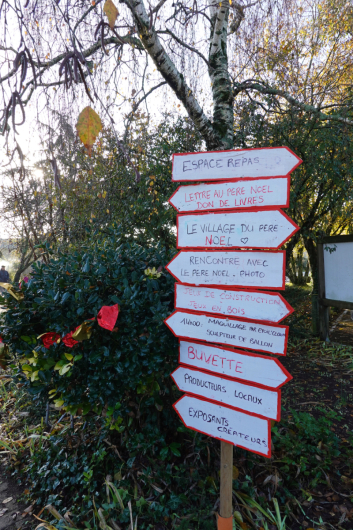 ESPACE REPAS
LETTRE AU PÈRE NOËL
DON DE LIVRES
LE VILLAGE DU PÈRE
NOËL ♡
RENCONTRE AVEC
LE PÈRE NOËL. PHOTO
DE CONSTRUCTION
BOIS
MAQUILLAGE
SCULPTEUR DE BALLON
BUVETTE
PRODUCTEURS LOCAUX
EXPOSANTS
CRÉATEURS